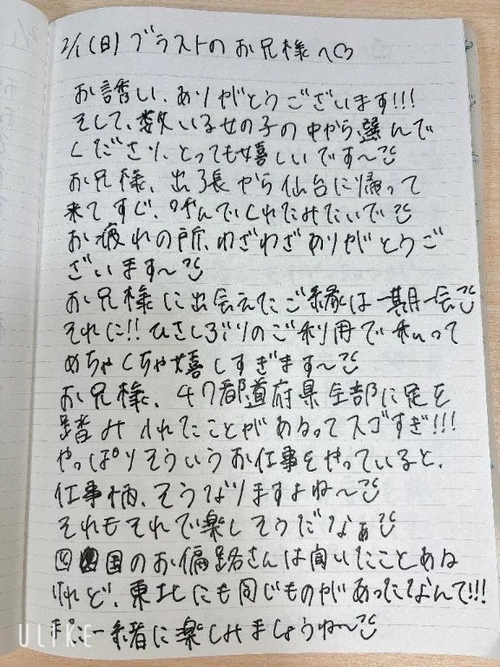 2/1(日)ブラストのお兄様へ♡
お誘い、ありがとうございます!!!
そして、数いる女の子の中から、選んで
くださり、とっても嬉しいです〜
お兄様、出張から仙台に帰って
来てすぐ、呼んでくれたみたいで
お疲れの所、わざわざありがとうご
ざいます〜
お兄様に出会えたご縁は一期一会
それに!!ひさしぶりのご利用で私って
めちゃくちゃ嬉しすぎます〜
お兄様、47都道府県全部に足を
踏み入れたことがあるってスゴすぎ!!!
やっぱりそういうお仕事をやっていると、
仕事柄、そうなりますよね〜
それもそれで楽しそうだなぁ
四国のお偏路さんは聞いたことある
けれど、東北にも同じものがあったなんて!!!
また一緒に楽しみましょうね〜
ULIKE